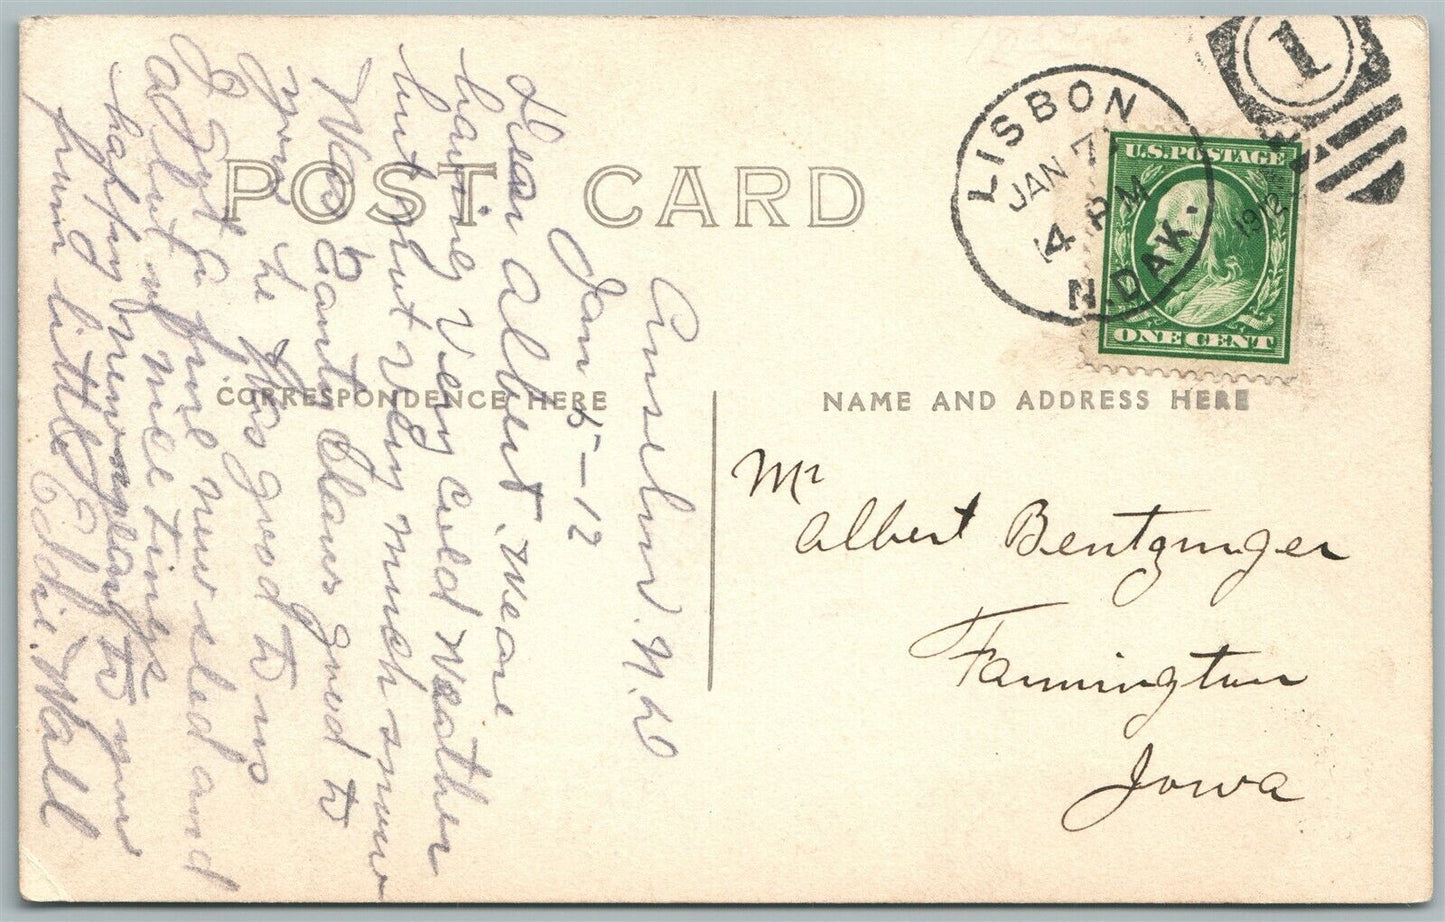 POST CARD
CORRESPONDENCE HERE
NAME AND ADDRESS HERE
LISBON
JAN 7
4 PM
1912
N. DAK.
1
U.S. POSTAGE
ONE CENT
Mr
Albert Bentzinger
Farmington
Iowa
Anselm. N.D
Jan 5-12
Dear Albert. Weare
having Very cold Weather
but not very much snow
Was Santy Claws good to
you he was good to us
I got a fine new sled and
a lot of nice things
happy new year to you
from little Eddie. Wall